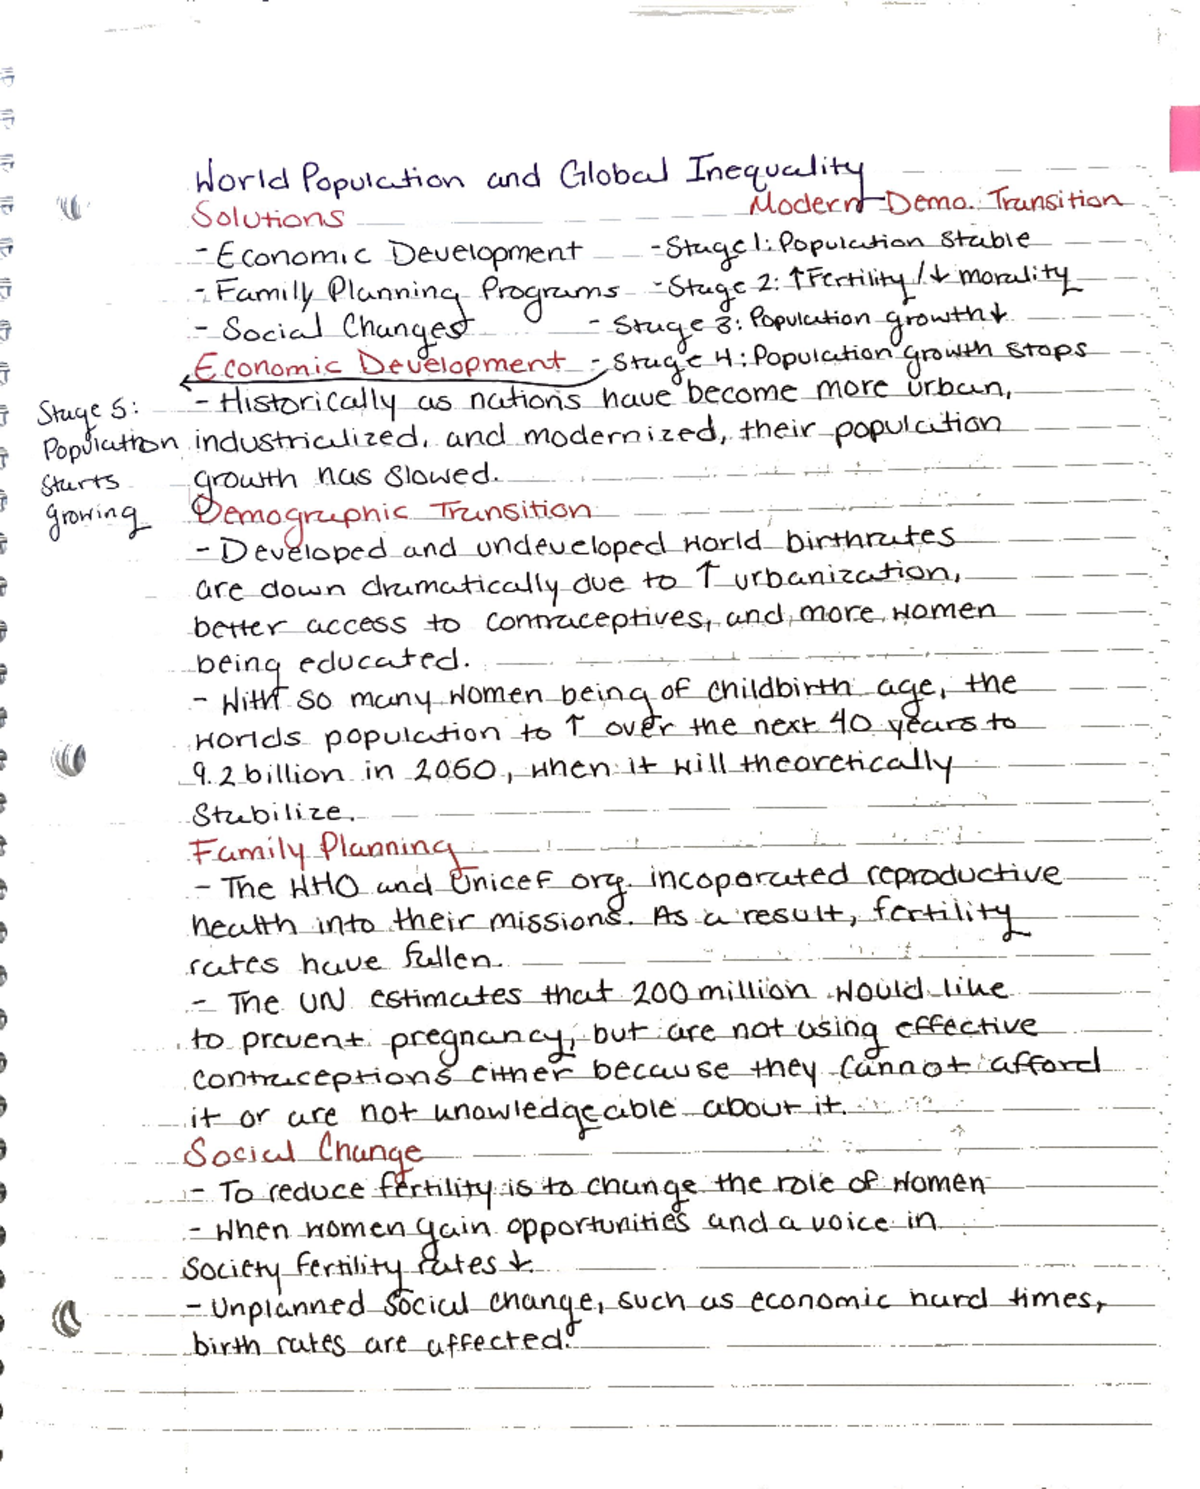 World Population and Global Inequality
Solutions
Modern Demo. Transition
- Economic Development
- Stage 1: Population Stable
- Family Planning Programs
- Stage 2: ↑Fertility/↓ morality
- Social Changes
- Stage 3: Population growth↓
Economic Development
- Stage 4: Population growth stops
Stage 5:
Population
Starts
growing
- Historically as nations have become more urban,
industrialized, and modernized, their population
growth has slowed.
Demographic Transition
- Developed and undeveloped world birthrates
are down dramatically due to ↑ urbanization,
better access to contraceptives, and more women
being educated.
- With so many women being of childbirth age, the
worlds population to ↑ over the next 40 years to
9.2 billion in 2050, when it will theoretically
Stabilize.
Family Planning
- The WHO and Unicef org. incoporated reproductive
health into their missions. As a result, fertility
rates have fallen.
- The UN estimates that 200 million would like
to prevent pregnancy, but are not using effective
contraceptions either because they cannot afford
it or are not unowledgeable about it.
Social Change
- To reduce fertility is to change the role of women
- When women gain opportunities and a voice in
society fertility rates ↓.
- Unplanned social change, such as economic hard times,
birth rates are affected.